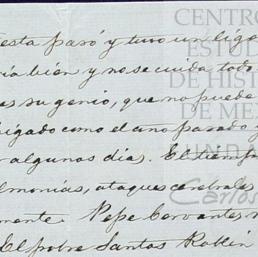 esta pasó y tuvo un lige
ría bién y no se cuida todo
es su genio, que no puede
higado como el año pasado y
r algunos dias. El tiemp
lmonías, ataques cerebrales
mente. Pepe Cervantes
El pobre Santos Roblin
CENTRO
ESTU
DE HIST
DE ME
FUNDA
Carlos